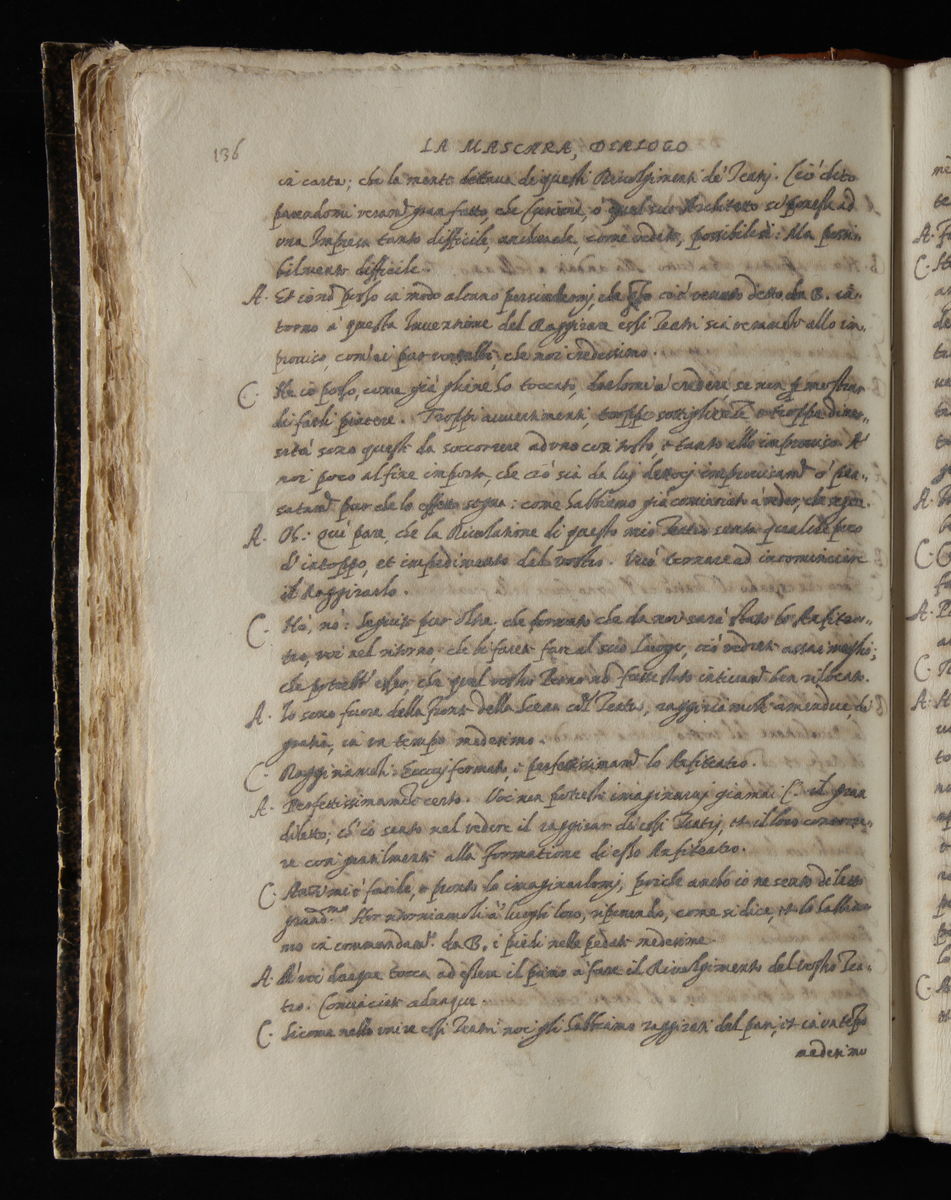 136
LA MASCARA, DIALOGO
in carta; che la mente de questi Rivolgimenti de' Teatrj. Ciò dico
parendomi gran fatto, che Curione, ò qual suo Architetto si ponesse ad
una Impresa tanto difficile, ancorche, come vedete, possibile sì: Ma possi-
bilmente difficile.
A. Et io nõ posso in modo alcuno persuadermj, che ciò venuto detto da B. in-
torno à questa Inventione del Raggirare essi Teatri sia venuto allo im-
proviso, com' ei par che noi credessimo.
C. Ne io posso, come già gliene hò toccato, darlomi à credere se non mostrar
di farli piacere. Troppi avvertimenti, troppe sottigliezze e troppa diver-
sità sono queste da soccorrere ad uno così tosto, e tanto allo improviso. A'
noi poco al fine importa, che ciò sia da luj improvisam.te ò pen-
satam.te pur che lo effetto segua: come habbiamo già cominciato à veder, che segue.
A. Oh: Quì pare, che la Rivolutione di questo mio Teatro senta qualche poco
d'intoppo, et impedimento del vostro. Vuò tornare ad incominciare
il Raggirarlo.
C. Nò, nò: Seguite pur oltre, che formato che da noi sarà stato lo Anfitea-
tro, voi nel ritorno, che li farete fare al suo luogo, ciò vedrete assai meglio;
che potrebb' esser, che quel vostro Perno nõ fusse stato intieram.te ben collocato.
A. Io sono fuora della Fronte della Scena col Teatro, amendue, di
gratia, in un tempo medesimo.
C. formato è perfettissimam.te lo Anfiteatro.
A. Perfettissimam.te certo. Voi non potreste imaginarvj giamai C. il gran
diletto, ch' io sento nel vedere il raggirar di essi Teatrj, et il loro
re così gentilmente alla Formatione di esso Anfiteatro.
C. Anzi mi è facile, e pronto lo imaginarlomj, poiche anch' io ne sento diletto
grand.mo Hor ritorniamoli à luoghi loro, riponendo, come si dice, et lo habbia-
mo in commandam.to da B. i piedi nelle pedate medesime
A. A' voi dunque tocca ad essere il primo à fare il Rivolgimento del vostro Tea-
tro. Cominciate adunque.
C. Sicome nello unire essi Teatri noi gli habbiamo raggirati del pari, et in un tẽpo
medesimo